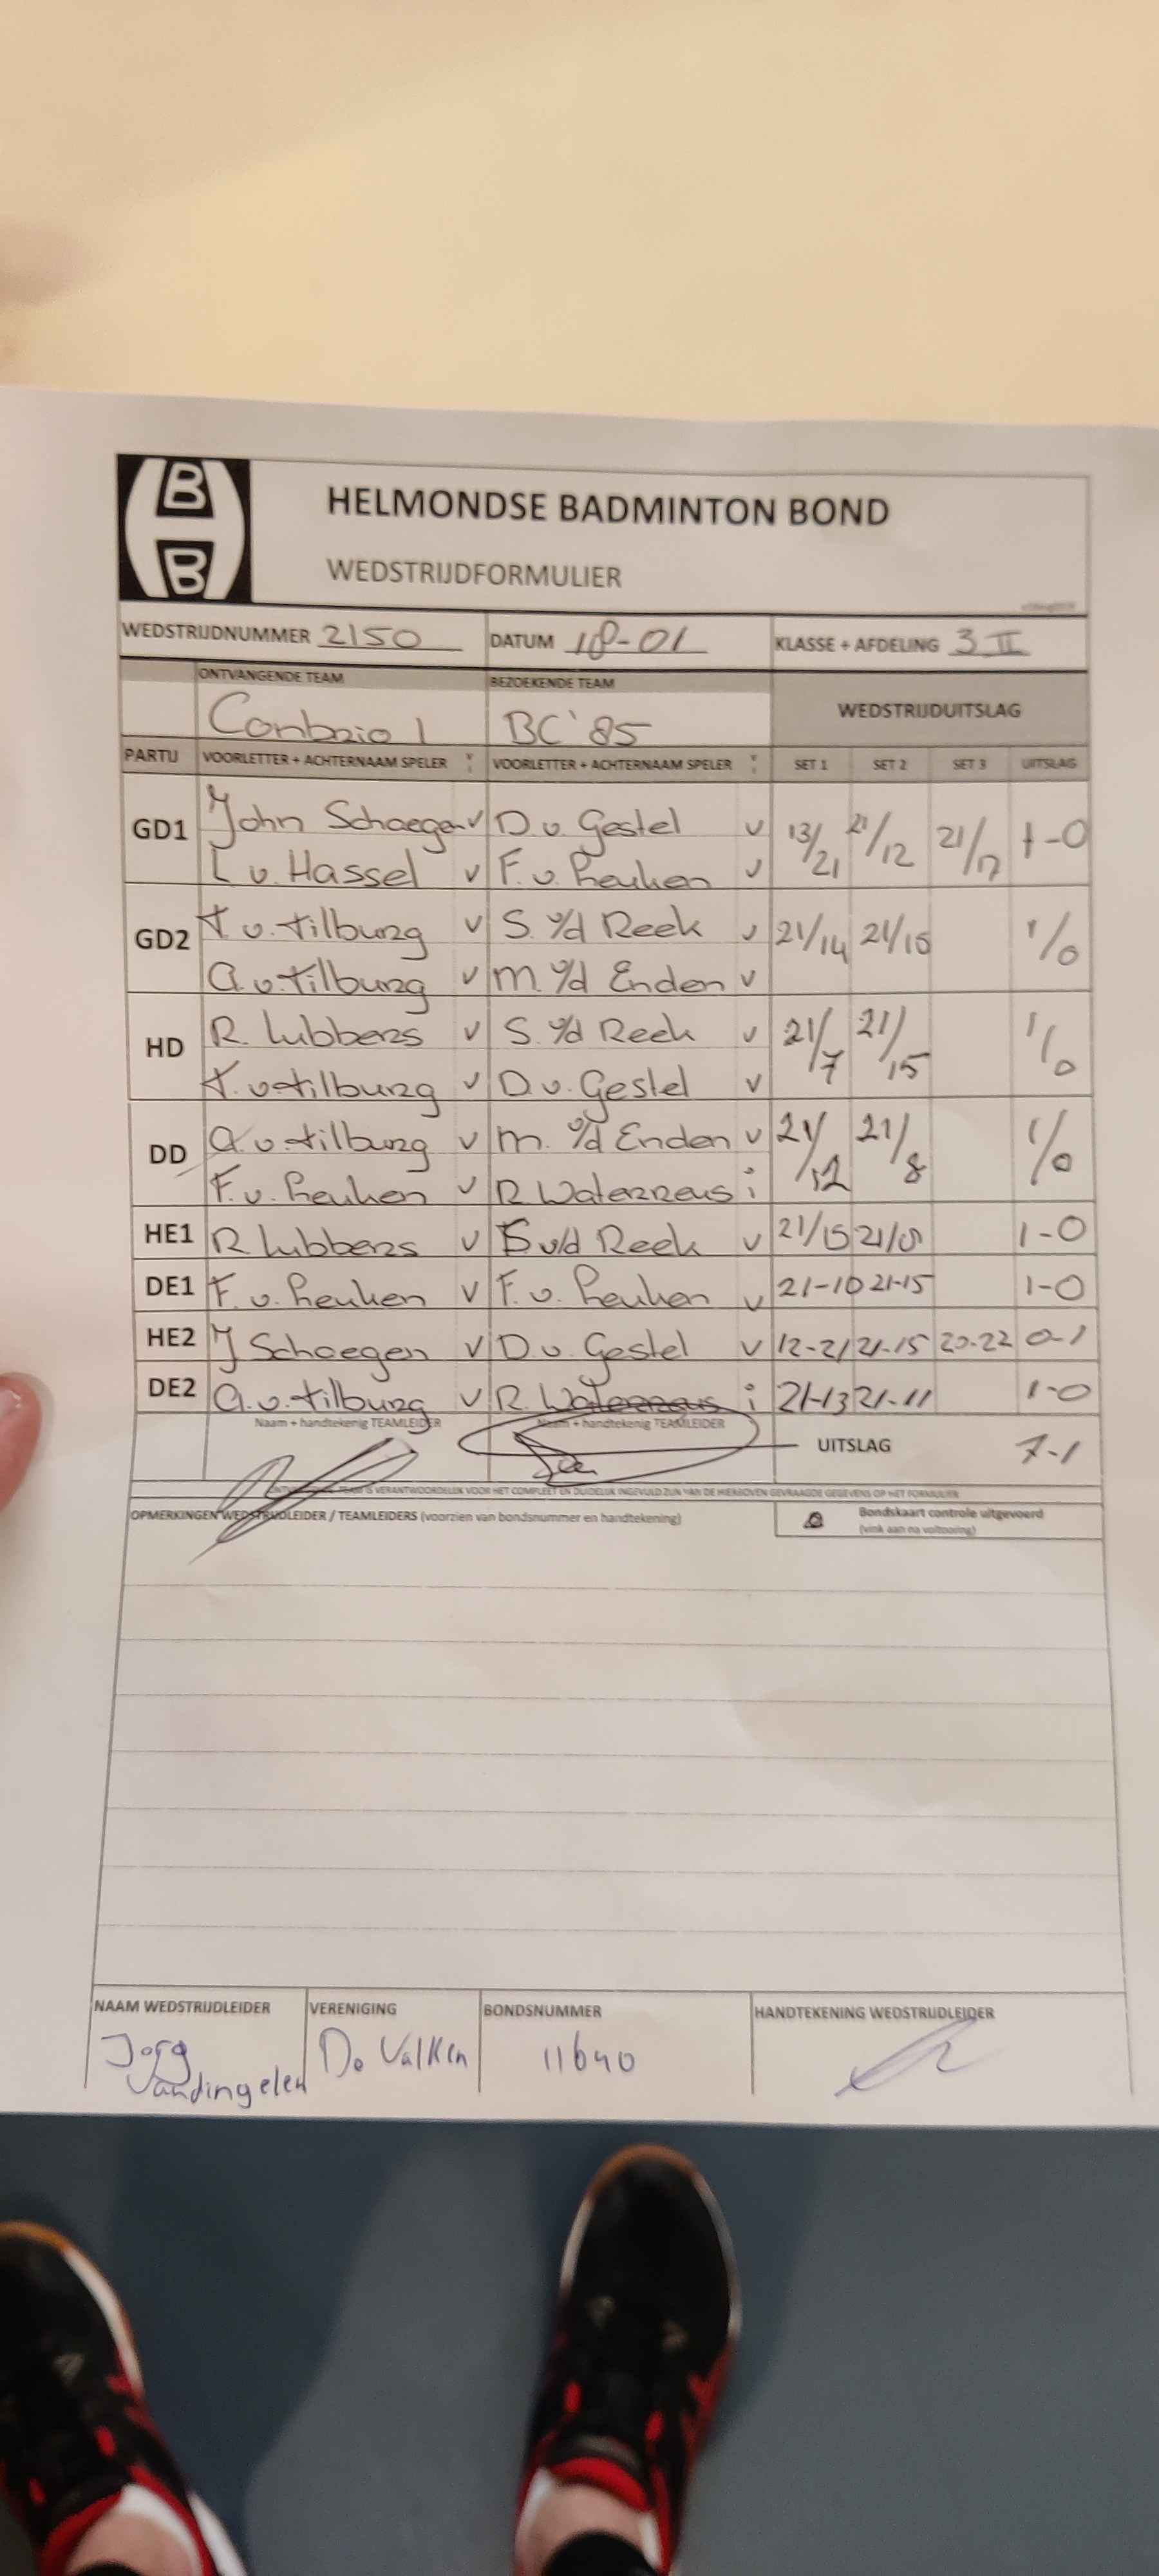 HELMONDSE BADMINTON BOND
WEDSTRIJDFORMULIER
WEDSTRIJDNUMMER 2150 DATUM 18-01 KLASSE + AFDELING 3 II
ONTVANGENDE TEAM BEZOEKENDE TEAM WEDSTRIJDUITSLAG
Conbrio 1 BC '85
PARTIJ VOORLETTER + ACHTERNAAM SPELER VOORLETTER + ACHTERNAAM SPELER SET 1 SET 2 SET 3 UITSLAG
GD1 John Schaegen v D. v. Gestel v 13/21 21/12 21/17 1-0
v. Hassel v F. v. Heuken v
GD2 T. v. tilburg v S. v/d Reek v 21/14 21/16 1/0
a. v. tilburg v m. v/d Enden v
HD R. lubbers v S. v/d Reek v 21/7 21/15 1/0
T. v. tilburg v D. v. Gestel v
DD a. v. tilburg v m. v/d Enden v 21/12 21/8 1/0
F. v. Heuken v R. Waterreus i
HE1 R lubbers v S v/d Reek v 21/15 21/ 1-0
DE1 F. v. Heuken v F. v. Heuken v 21-10 21-15 1-0
HE2 J Schaegen v D. v. Gestel v 12-21 21-15 20-22 0-1
DE2 a. v. tilburg v R. Waterreus i 21-13 21-11 1-0
Naam + handtekenig TEAMLEIDER Naam + handtekenig TEAMLEIDER UITSLAG 7-1
TEAM IS VERANTWOORDELIJK VOOR HET COMPLEET EN DUIDELIJK INGEVULD ZIJN VAN DE HIERBOVEN GEVRAAGDE GEGEVENS OP HET FORMULIER
OPMERKINGEN WEDSTRIJDLEIDER / TEAMLEIDERS (voorzien van bondsnummer en handtekening) Bondskaart controle uitgevoerd
(vink aan na voltooiing)
NAAM WEDSTRIJDLEIDER VERENIGING BONDSNUMMER HANDTEKENING WEDSTRIJDLEIDER
Jorg De Valken 11640
Vandingelen